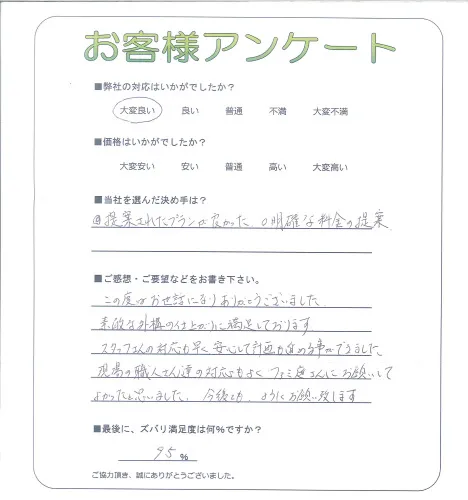 お客様アンケート
■弊社の対応はいかがでしたか？
大変良い 良い 普通 不満 大変不満
■価格はいかがでしたか？
大変安い 安い 普通 高い 大変高い
■当社を選んだ決め手は？
提案されたプランが良かった ○明確な料金の提案
■ご感想・ご要望などをお書き下さい。
この度はお世話になりありがとうございました
素敵な外構の仕上がりに満足しております
スタッフさんの対応も早く安心して計画も進める事ができました
現場の職人さん達の対応もよく ファミ庭さんにお願いして
よかったと思いました。今後とも、よろしくお願い致します
■最後に、ズバリ満足度は何%ですか？
95 %
ご協力頂き、誠にありがとうございました。